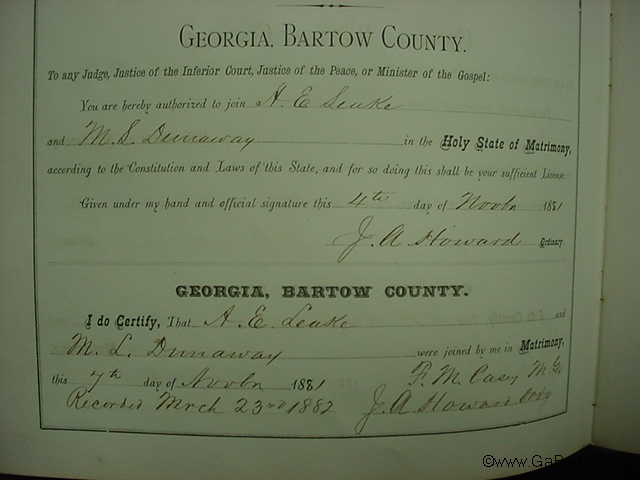 GEORGIA, BARTOW COUNTY.
To any Judge, Justice of the Inferior Court, Justice of the Peace, or Minister of the Gospel:
You are hereby authorized to join A. E. Leake
and M. L. Dunaway in the Holy State of Matrimony,
according to the Constitution and Laws of this State, and for so doing this shall be your sufficient License.
Given under my hand and official signature this 4th day of Novbr 1881
J. A. Howard Ordinary
GEORGIA, BARTOW COUNTY.
I do Certify, That A. E. Leake and
M. L. Dunaway were joined by me in Matrimony,
this 7th day of Novbr 1881 F. M. Casey M. G.
Recorded Mrch 23rd 1882 J. A. Howard Ordy
©www.Ga